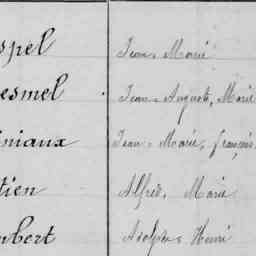 spel Jean Marie
esmel Jean, Auguste, Marie
niaux Jean, Marie, françois
tien Alfred, Marie
mbert Adolphe, Henri